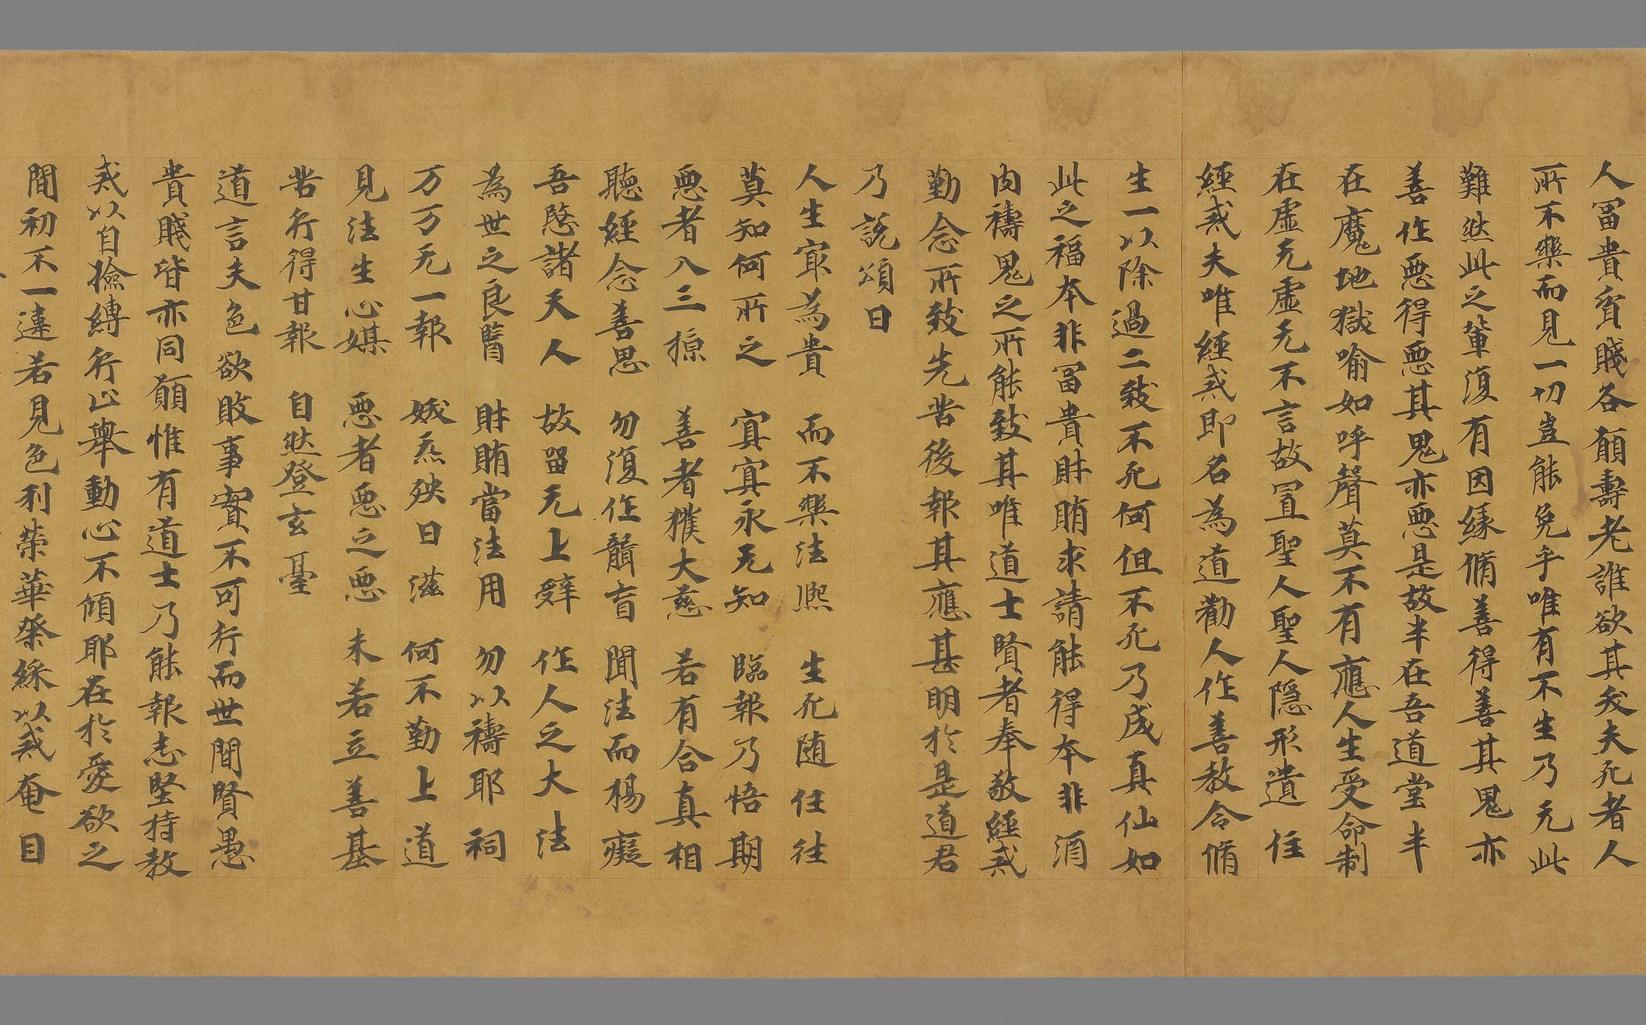 人冨貴貧賤各願壽老誰欲其夭夫死者人
所不樂而見一切豈能免乎唯有不生乃无此
難然此之輩復有因緣脩善得善其鬼亦
善作惡得惡其鬼亦惡是故半在吾道堂半
在魔地獄喻如呼聲莫不有應人生受命制
在虛无虛无不言故置聖人聖人隱形遺住
經戒夫唯經戒即名為道勸人作善教令脩
生一以除過二致不死何但不死乃成真仙如
此之福本非冨貴財賄求請能得本非酒
肉禱鬼之所能致其唯道士賢者奉敬經戒
勤念所致先苦後報其應甚明於是道君
乃說頌曰
人生寂為貴 而不樂法熙 生死随住往
莫知何所之 冥冥永无知 臨報乃悟期
惡者入三掠 善者獲大慈 若有合真相
聽經念善思 勿復作聾盲 聞法而楊癡
吾愍諸天人 故留无上辭 作人之大法
為世之良醫 財賄當法用 勿以禱耶祠
万万无一報 娥烝殃日滋 何不勤上道
見法生心媒 惡者惡之惡 未若立善基
苦行得甘報 自然登玄臺
道言夫色欲敗事實不可行而世間賢愚
貴賤皆亦同願惟有道士乃能報志堅持教
戒以自撿縛行止舉動心不傾耶在於愛欲之
間初不一違若見色利榮華發綵以戒奄目